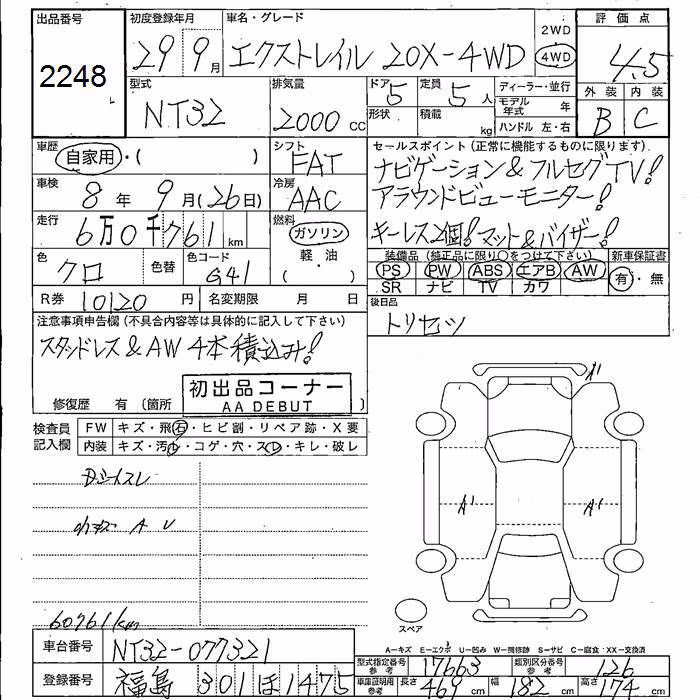 出品番号 初度登録年月 車名・グレード 2WD 評価点
2248 29 9月 エクストレイル 20X-4WD 4WD 4.5
型式 排気量 ドア 5 定員 5人 ディーラー・並行 外装 内装
NT32 2000cc 形状 積載 kg モデル年式 年 B C
ハンドル 左・右
車歴 自家用・( ) シフト FAT セールスポイント(正常に機能するものに限ります)
ナビゲーション&フルセグTV!
車検 8年 9月(26日) 冷房 AAC アラウンドビューモニター!
走行 6万0千761km 燃料 ガソリン 軽・油 ( ) キーレス2個!マット&バイザー!
色 クロ 色替 色コード G41 装備品(純正品に限り○をつけて下さい) 新車保証書
PS PW ABS エアB AW 有・無
SR ナビ TV カワ
R券 10120円 名変期限 月 日 後日品
トリセツ
注意事項申告欄(不具合内容等は具体的に記入して下さい)
スタッドレス&AW 4本積込み!
修復歴 有(箇所 )
初出品コーナー
AA DEBUT
検査員記入欄 FW キズ・飛石・ヒビ割・リペア跡・X要
内装 キズ・汚・コゲ・穴・スレ・キレ・破レ
A1
A1 A1
60761km
スペア
A-キズ E-エクボ U-凹み W-補修跡 S-サビ C-腐食 XX-交換済
車台番号 NT32-077321
型式指定番号 参考 17663 類別区分番号 参考 126
登録番号 福島 301 ほ 1475
車庫証明用 参考 長さ 469cm 幅 182cm 高さ 174cm